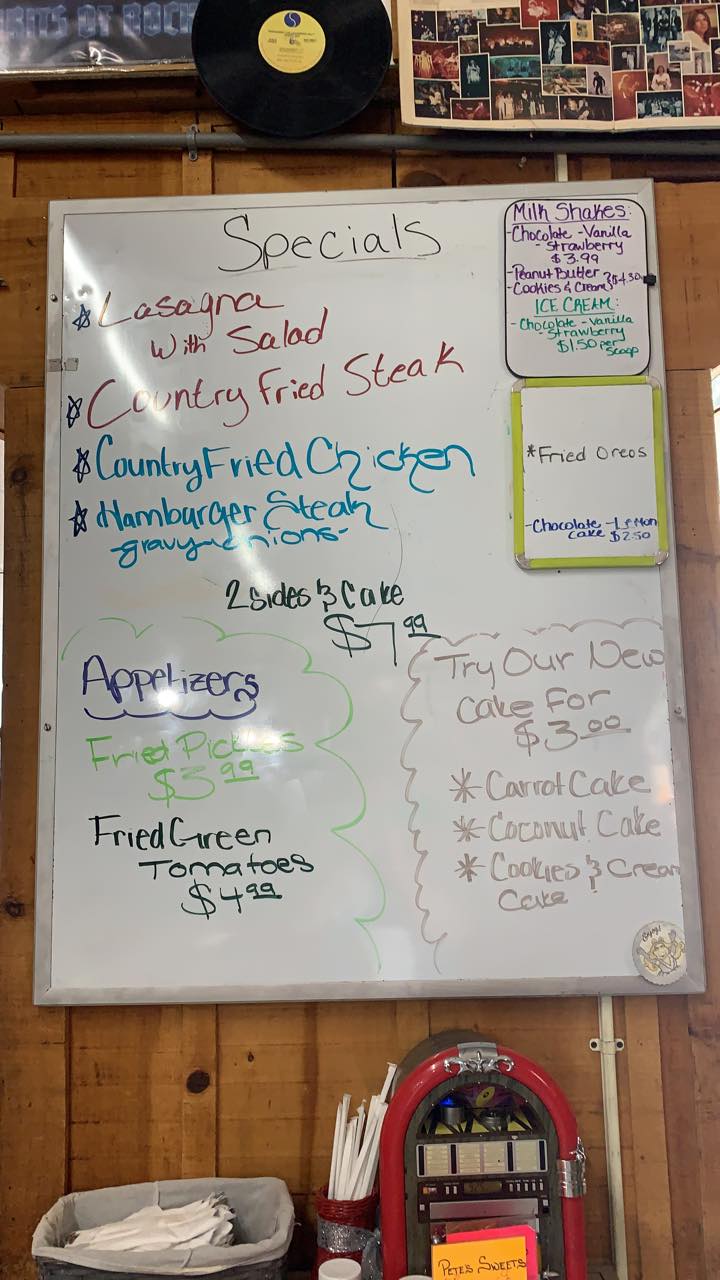 BITS OF ROCK
Specials
Lasagna
With Salad
Country Fried Steak
Country Fried Chicken
Hamburger Steak
-gravy-onions-
2 Sides & Cake
$7.99
Appetizers
Fried Pickles
$3.99
Fried Green
Tomatoes
$4.99
Milk Shakes:
-Chocolate -Vanilla
-Strawberry
$3.99
-Peanut Butter
-Cookies & Cream $4.30
ICE CREAM:
-Chocolate -Vanilla
-Strawberry
$1.50 per
Scoop
*Fried Oreos
-Chocolate -Lemon
Cake $2.50
Try Our New
Cake For
$3.00
* Carrot Cake
* Coconut Cake
* Cookies & Cream
Cake
PETE'S SWEETS